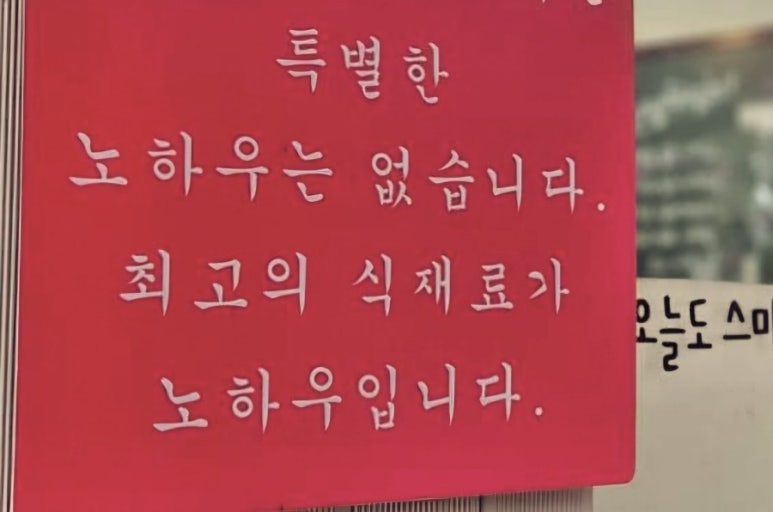 특별한
노하우는 없습니다.
최고의 식재료가
노하우입니다.
오늘도 스마